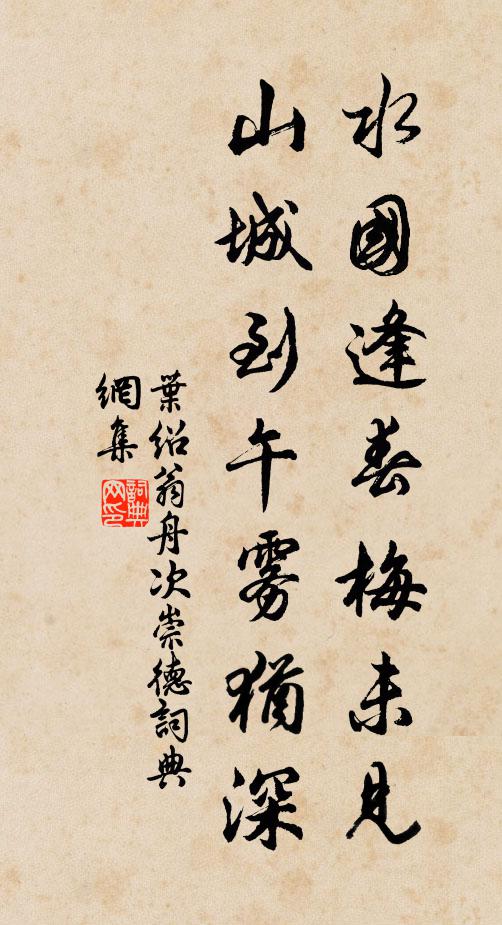 水國逢春梅未見
山城到午雾猶深
葉紹翁舟次崇德詞典
網集
詞典
网印